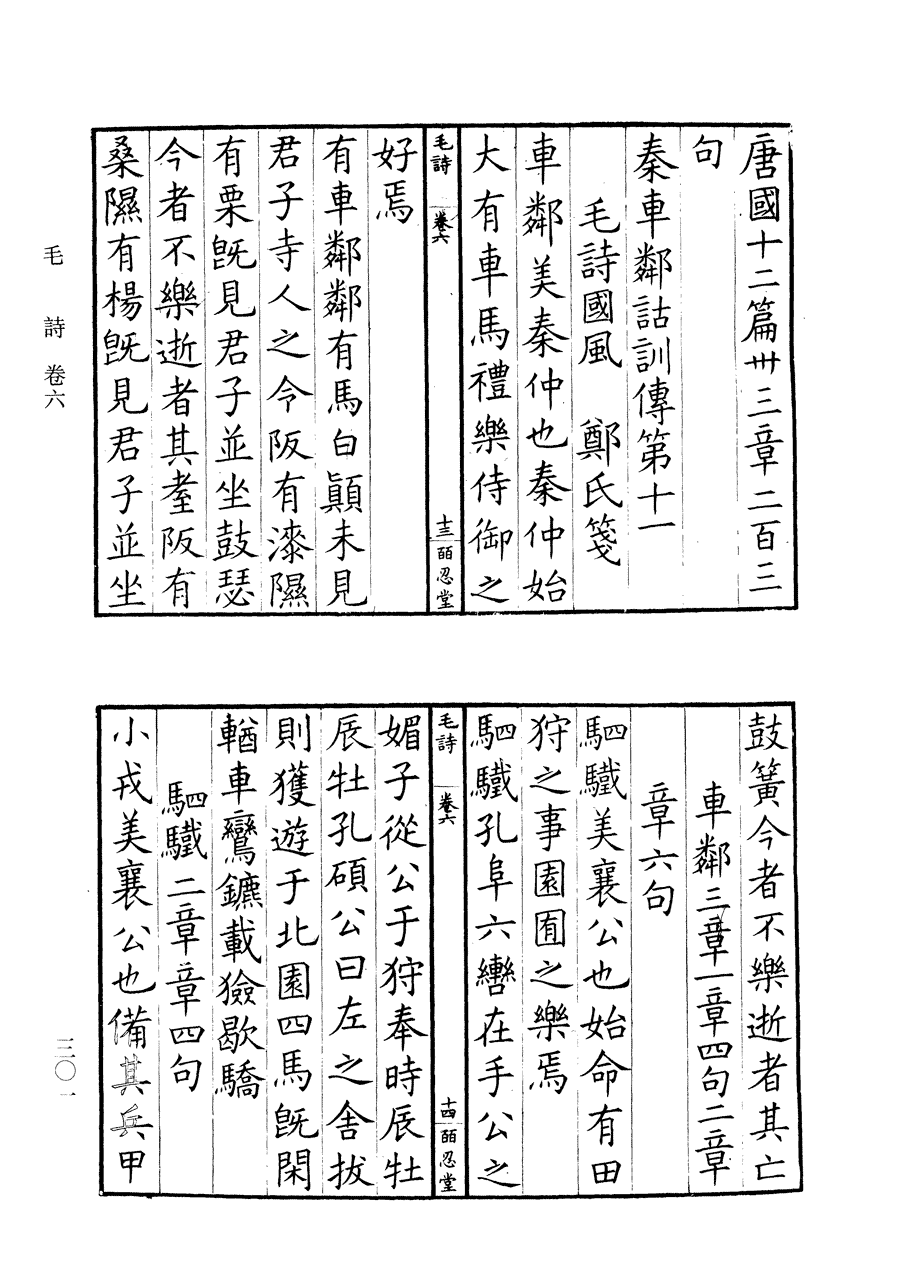 唐國十二篇卅三章二百三
句
秦車鄰詁訓傳第十一
毛詩國風　鄭氏箋
車鄰美秦仲也秦仲始
大有車馬禮樂侍御之
毛詩　卷六　十三　皕忍堂
好焉
有車鄰鄰有馬白顛未見
君子寺人之令阪有漆隰
有栗旣見君子並坐鼓瑟
今者不樂逝者其耋阪有
桑隰有楊旣見君子並坐
鼓簧今者不樂逝者其亡
車鄰三章一章四句二章
章六句
駟驖美襄公也始命有田
狩之事園囿之樂焉
駟驖孔阜六轡在手公之
毛詩　卷六　十四　皕忍堂
媚子從公于狩奉時辰牡
辰牡孔碩公曰左之舍拔
則獲遊于北園四馬旣閑
輶車鸞鑣載獫歇驕
駟驖三章章四句
小戎美襄公也備其兵甲
毛詩　卷六
三〇一